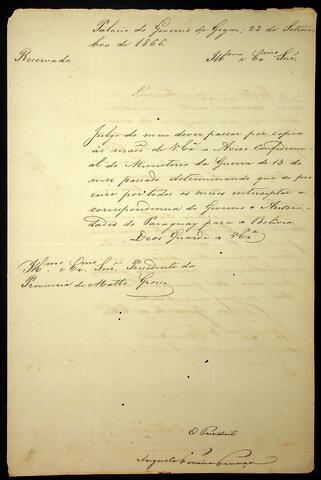 Palacio do Governo de Goyaz, 22 de Setem-
bro de 1866.
Reservado
Illmo e Exmo Snr.
Julgo do meu dever passar por copia
ás mãos de V Exa o Aviso Confidenci-
al do Ministerio da Guerra de 13 do
mez passado determinando que se pro
cure por todos os meios interceptar a
correspondencia do Governo e Autori-
dades do Paraguay para a Bolivia.
Deos Guarde a V Exa
Illmo e Exmo Snr. Presidente da
Provincia de Matto Grosso
O Presidente
Augusto Ferreira França